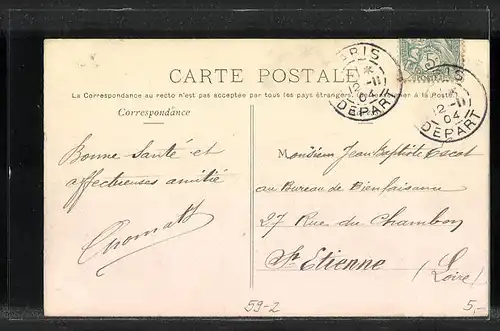 CARTE POSTALE
La Correspondance au recto n'est pas acceptée par tous les pays étrangers. à la Poste.
Correspondance
Bonne Santé et
affectueuses amitié
Monsieur Jean Baptiste
au Bureau de Bienfaisance
27 Rue du Chambon
St Etienne
(Loire)
PARIS
12 -11
04
DEPART
PARIS
12 -11
04
DEPART
59-2
5,-